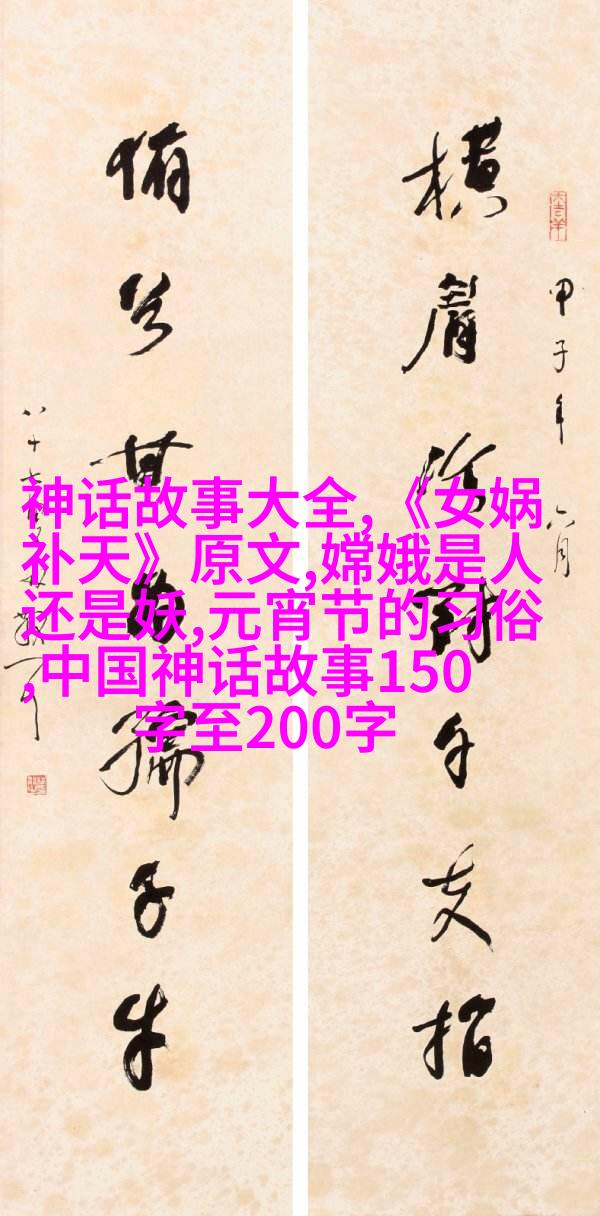 神话故事大全,《女娲
补天》原文,嫦娥是人
还是妖,元宵节的习俗
,中国神话故事150
字至200字
甲子年六月
橫眉冷對千夫指
俯首甘為孺子牛
八十七